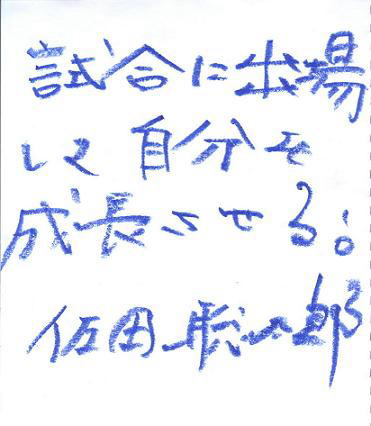 試合に出場
して自分を
成長させる。
佐田聡一郎